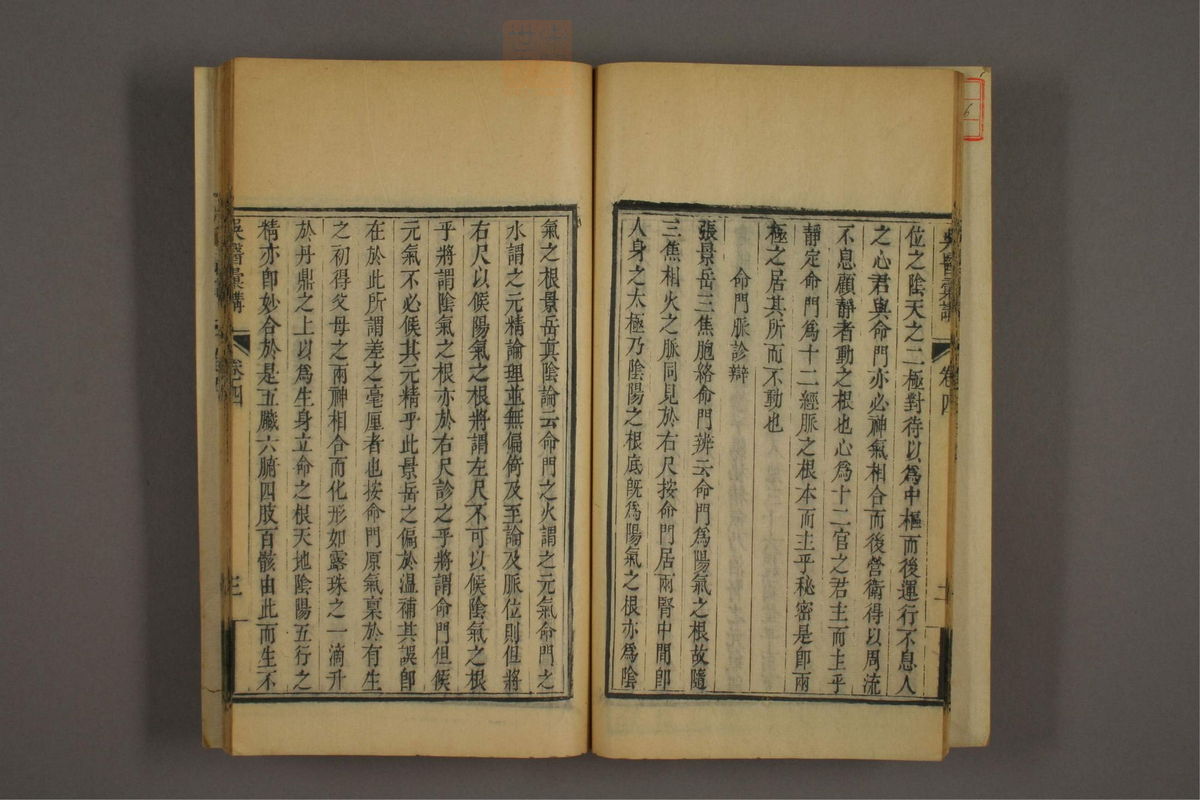 吳醫彙講 卷四
位之陰天之二極對待以爲中樞而後運行不息人
之心君與命門亦必神氣相合而後營衛得以周流
不息顧靜者動之根也心爲十二官之君主而主乎
靜定命門爲十二經脈之根本而主乎秘密是卽兩
極之居其所而不動也
命門脈診辯
張景岳三焦胞絡命門辨云命門爲陽氣之根故隨
三焦相火之脈同見於右尺按命門居兩腎中間卽
人身之太極乃陰陽之根底旣爲陽氣之根亦爲陰
氣之根景岳真陰論云命門之火謂之元氣命門之
水謂之元精論理並無偏倚及至論及脈位則但將
右尺以候陽氣之根將謂左尺不可以候陰氣之根
乎將謂陰氣之根亦於右尺診之乎將謂命門但候
元氣不必候其元精乎此景岳之偏於溫補其誤卽
在於此所謂差之毫厘者也按命門原氣稟於有生
之初得父母之兩神相合而化形如露珠之一滴升
於丹鼎之上以爲生身立命之根天地陰陽五行之
精亦卽妙合於是五臟六腑四肢百骸由此而生不
吳醫彙講 卷四 三